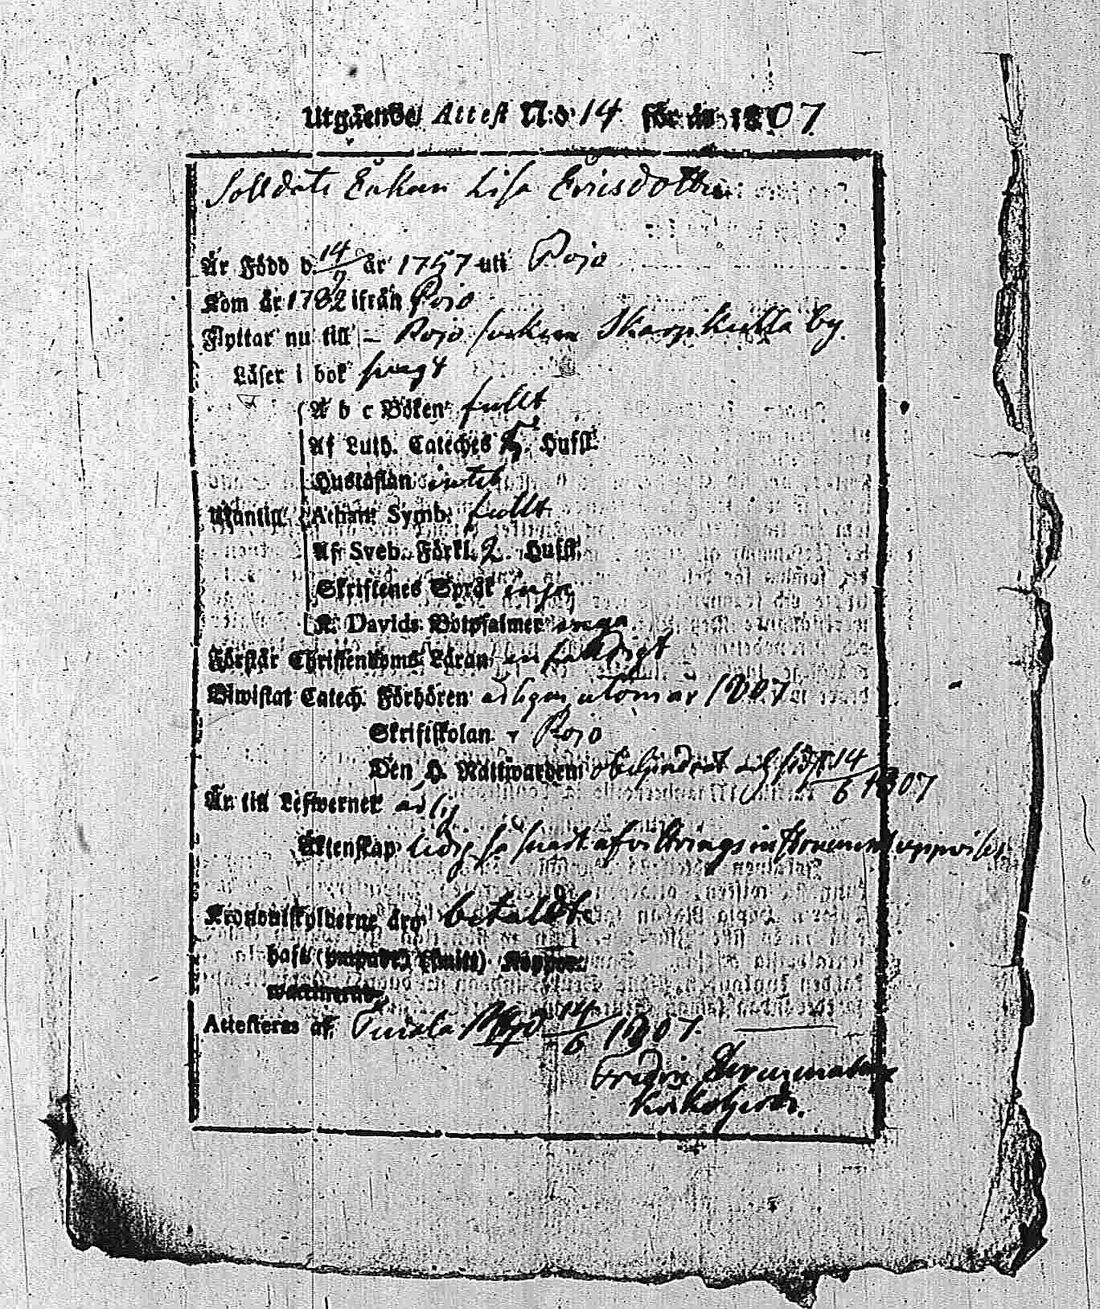 Utgående Attest N:o 14 för år 1807
Solldats Enkan Lisa Ericsdotter
Är Född d. 14/9 år 1757 uti Pojo
Kom år 1782 ifrån Pojo
Flyttar nu till Pojo sockn Skarpkulla by.
Läser i bok svagt
A b c Boken fullt
Af Luth. Cateches 5. Hufst.
Hustaflan intet
Utantill Athan. Symb. fullt
Af Sveb. Förkl. 2. Hufst.
Skriftenes Språk inga
K. Davids Botpsalmer inga
Förstår Christendoms Läran
Biwistat Catech. Förhören utom år 1807
Skriftskolan Pojo
Den H. Nattwarden obehindrat sidst 14/6 1807
Är till Lefwernet
Äktenskap ledig så snart afvittrings instrument uppvises
Kronoutskylderne äro betaldte
haft Koppor
Attesteras af 14/6 1807.
Fridric